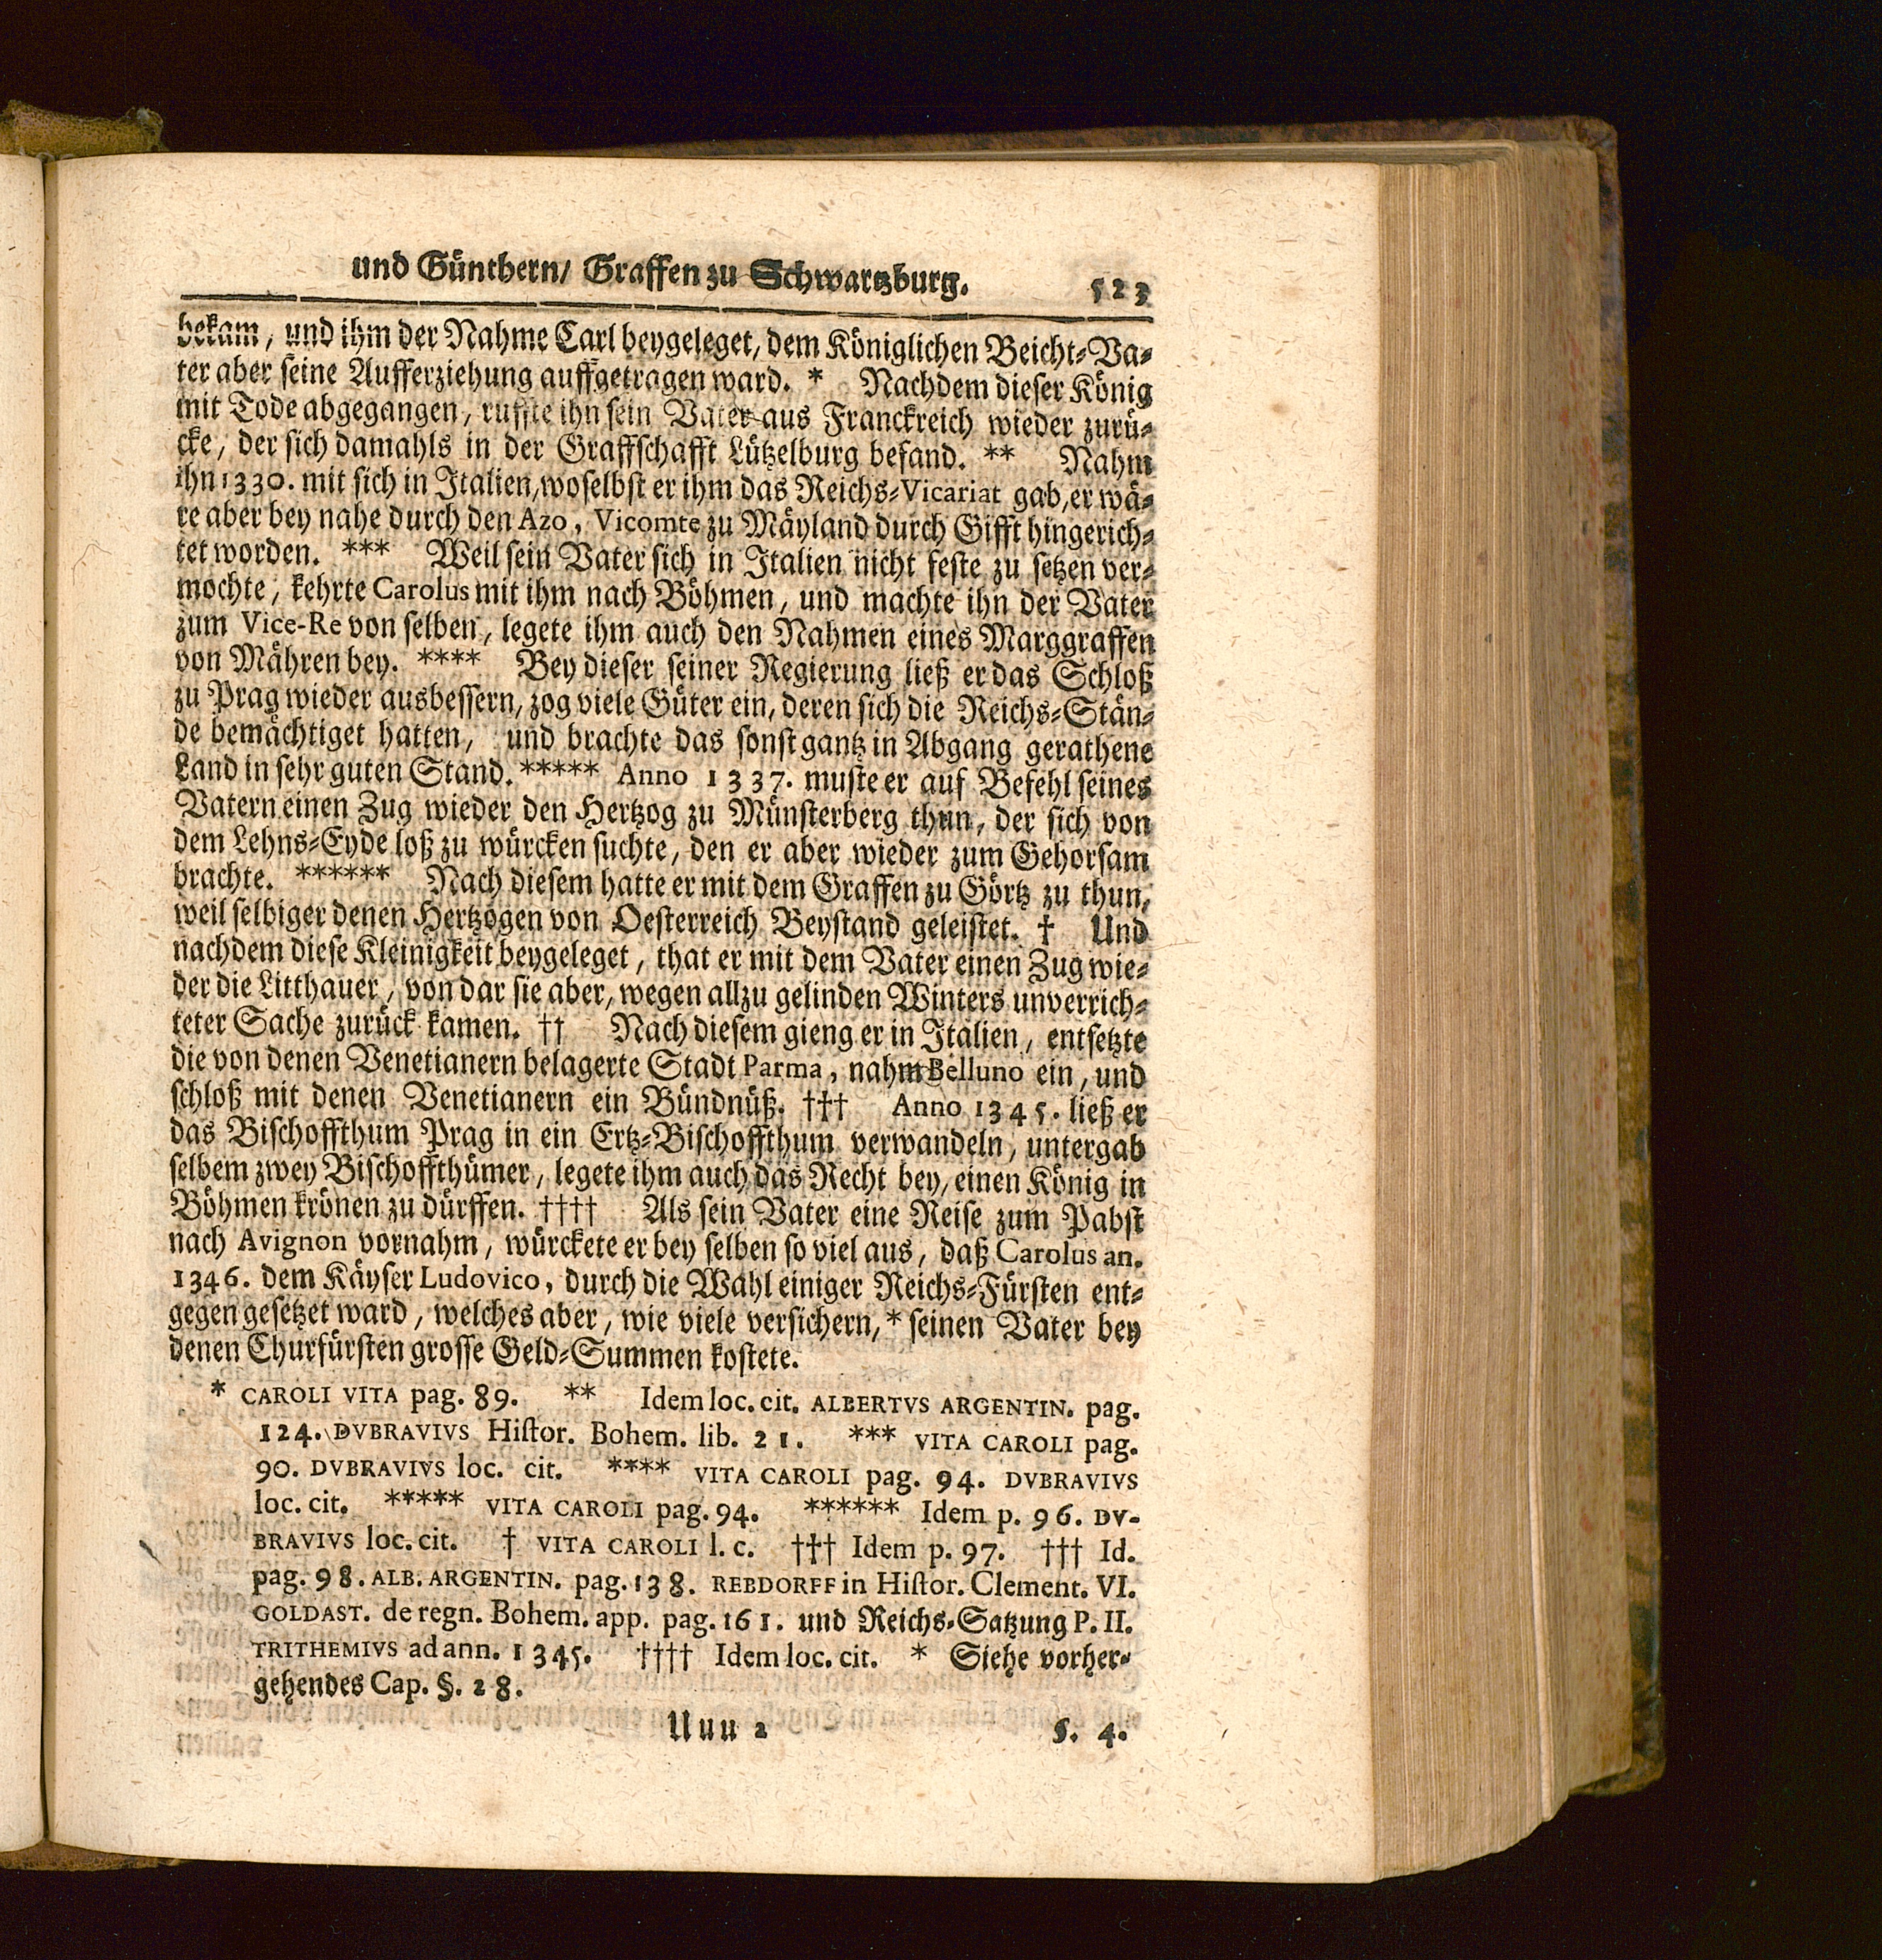 und Günthern/ Graffen zu Schwartzburg. 523
bekam, und ihm der Nahme Carl beygeleget, dem Königlichen Beicht-Va-
ter aber seine Aufferziehung auffgetragen ward. * Nachdem dieser König
mit Tode abgegangen, ruffte ihn sein Vater aus Franckreich wieder zurü-
cke, der sich damahls in der Graffschafft Lützelburg befand. ** Nahm
ihn 1330. mit sich in Italien, woselbst er ihm das Reichs-Vicariat gab, er wä-
re aber bey nahe durch den Azo, Vicomte zu Mäyland durch Gifft hingerich-
tet worden. *** Weil sein Vater sich in Italien nicht feste zu setzen ver-
mochte, kehrte Carolus mit ihm nach Böhmen, und machte ihn der Vater
zum Vice-Re von selben, legete ihm auch den Nahmen eines Marggraffen
von Mähren bey. **** Bey dieser seiner Regierung ließ er das Schloß
zu Prag wieder ausbessern, zog viele Güter ein, deren sich die Reichs-Stän-
de bemächtiget hatten, und brachte das sonst gantz in Abgang gerathene
Land in sehr guten Stand. ***** Anno 1337. muste er auf Befehl seines
Vatern einen Zug wieder den Hertzog zu Münsterberg thun, der sich von
dem Lehns-Eyde loß zu würcken suchte, den er aber wieder zum Gehorsam
brachte. ****** Nach diesem hatte er mit dem Graffen zu Görtz zu thun,
weil selbiger denen Hertzogen von Oesterreich Beystand geleistet. † Und
nachdem diese Kleinigkeit beygeleget, that er mit dem Vater einen Zug wie-
der die Litthauer, von dar sie aber, wegen allzu gelinden Winters unverrich-
teter Sache zurück kamen. †† Nach diesem gieng er in Italien, entsetzte
die von denen Venetianern belagerte Stadt Parma, nahm Belluno ein, und
schloß mit denen Venetianern ein Bündnüß. ††† Anno 1345. ließ er
das Bischoffthum Prag in ein Ertz-Bischoffthum verwandeln, untergab
selbem zwey Bischoffthümer, legete ihm auch das Recht bey, einen König in
Böhmen krönen zu dürffen. †††† Als sein Vater eine Reise zum Pabst
nach Avignon vornahm, würckete er bey selben so viel aus, daß Carolus an.
1346. dem Käyser Ludovico, durch die Wahl einiger Reichs-Fürsten ent-
gegen gesetzet ward, welches aber, wie viele versichern, * seinen Vater bey
denen Churfürsten grosse Geld-Summen kostete.
* CAROLI VITA pag. 89. ** Idem loc. cit. ALBERTVS ARGENTIN. pag.
124. DVBRAVIVS Histor. Bohem. lib. 21. *** VITA CAROLI pag.
90. DVBRAVIVS loc. cit. **** VITA CAROLI pag. 94. DVBRAVIVS
loc. cit. ***** VITA CAROLI pag. 94. ****** Idem p. 96. DV-
BRAVIVS loc. cit. † VITA CAROLI l. c. ††† Idem p. 97. ††† Id.
pag. 98. ALB. ARGENTIN. pag. 138. REBDORFF in Histor. Clement. VI.
GOLDAST. de regn. Bohem. app. pag. 161. und Reichs-Satzung P. II.
TRITHEMIVS ad ann. 1345. †††† Idem loc. cit. * Siehe vorher-
gehendes Cap. §. 28.
Uuu 2 §. 4.